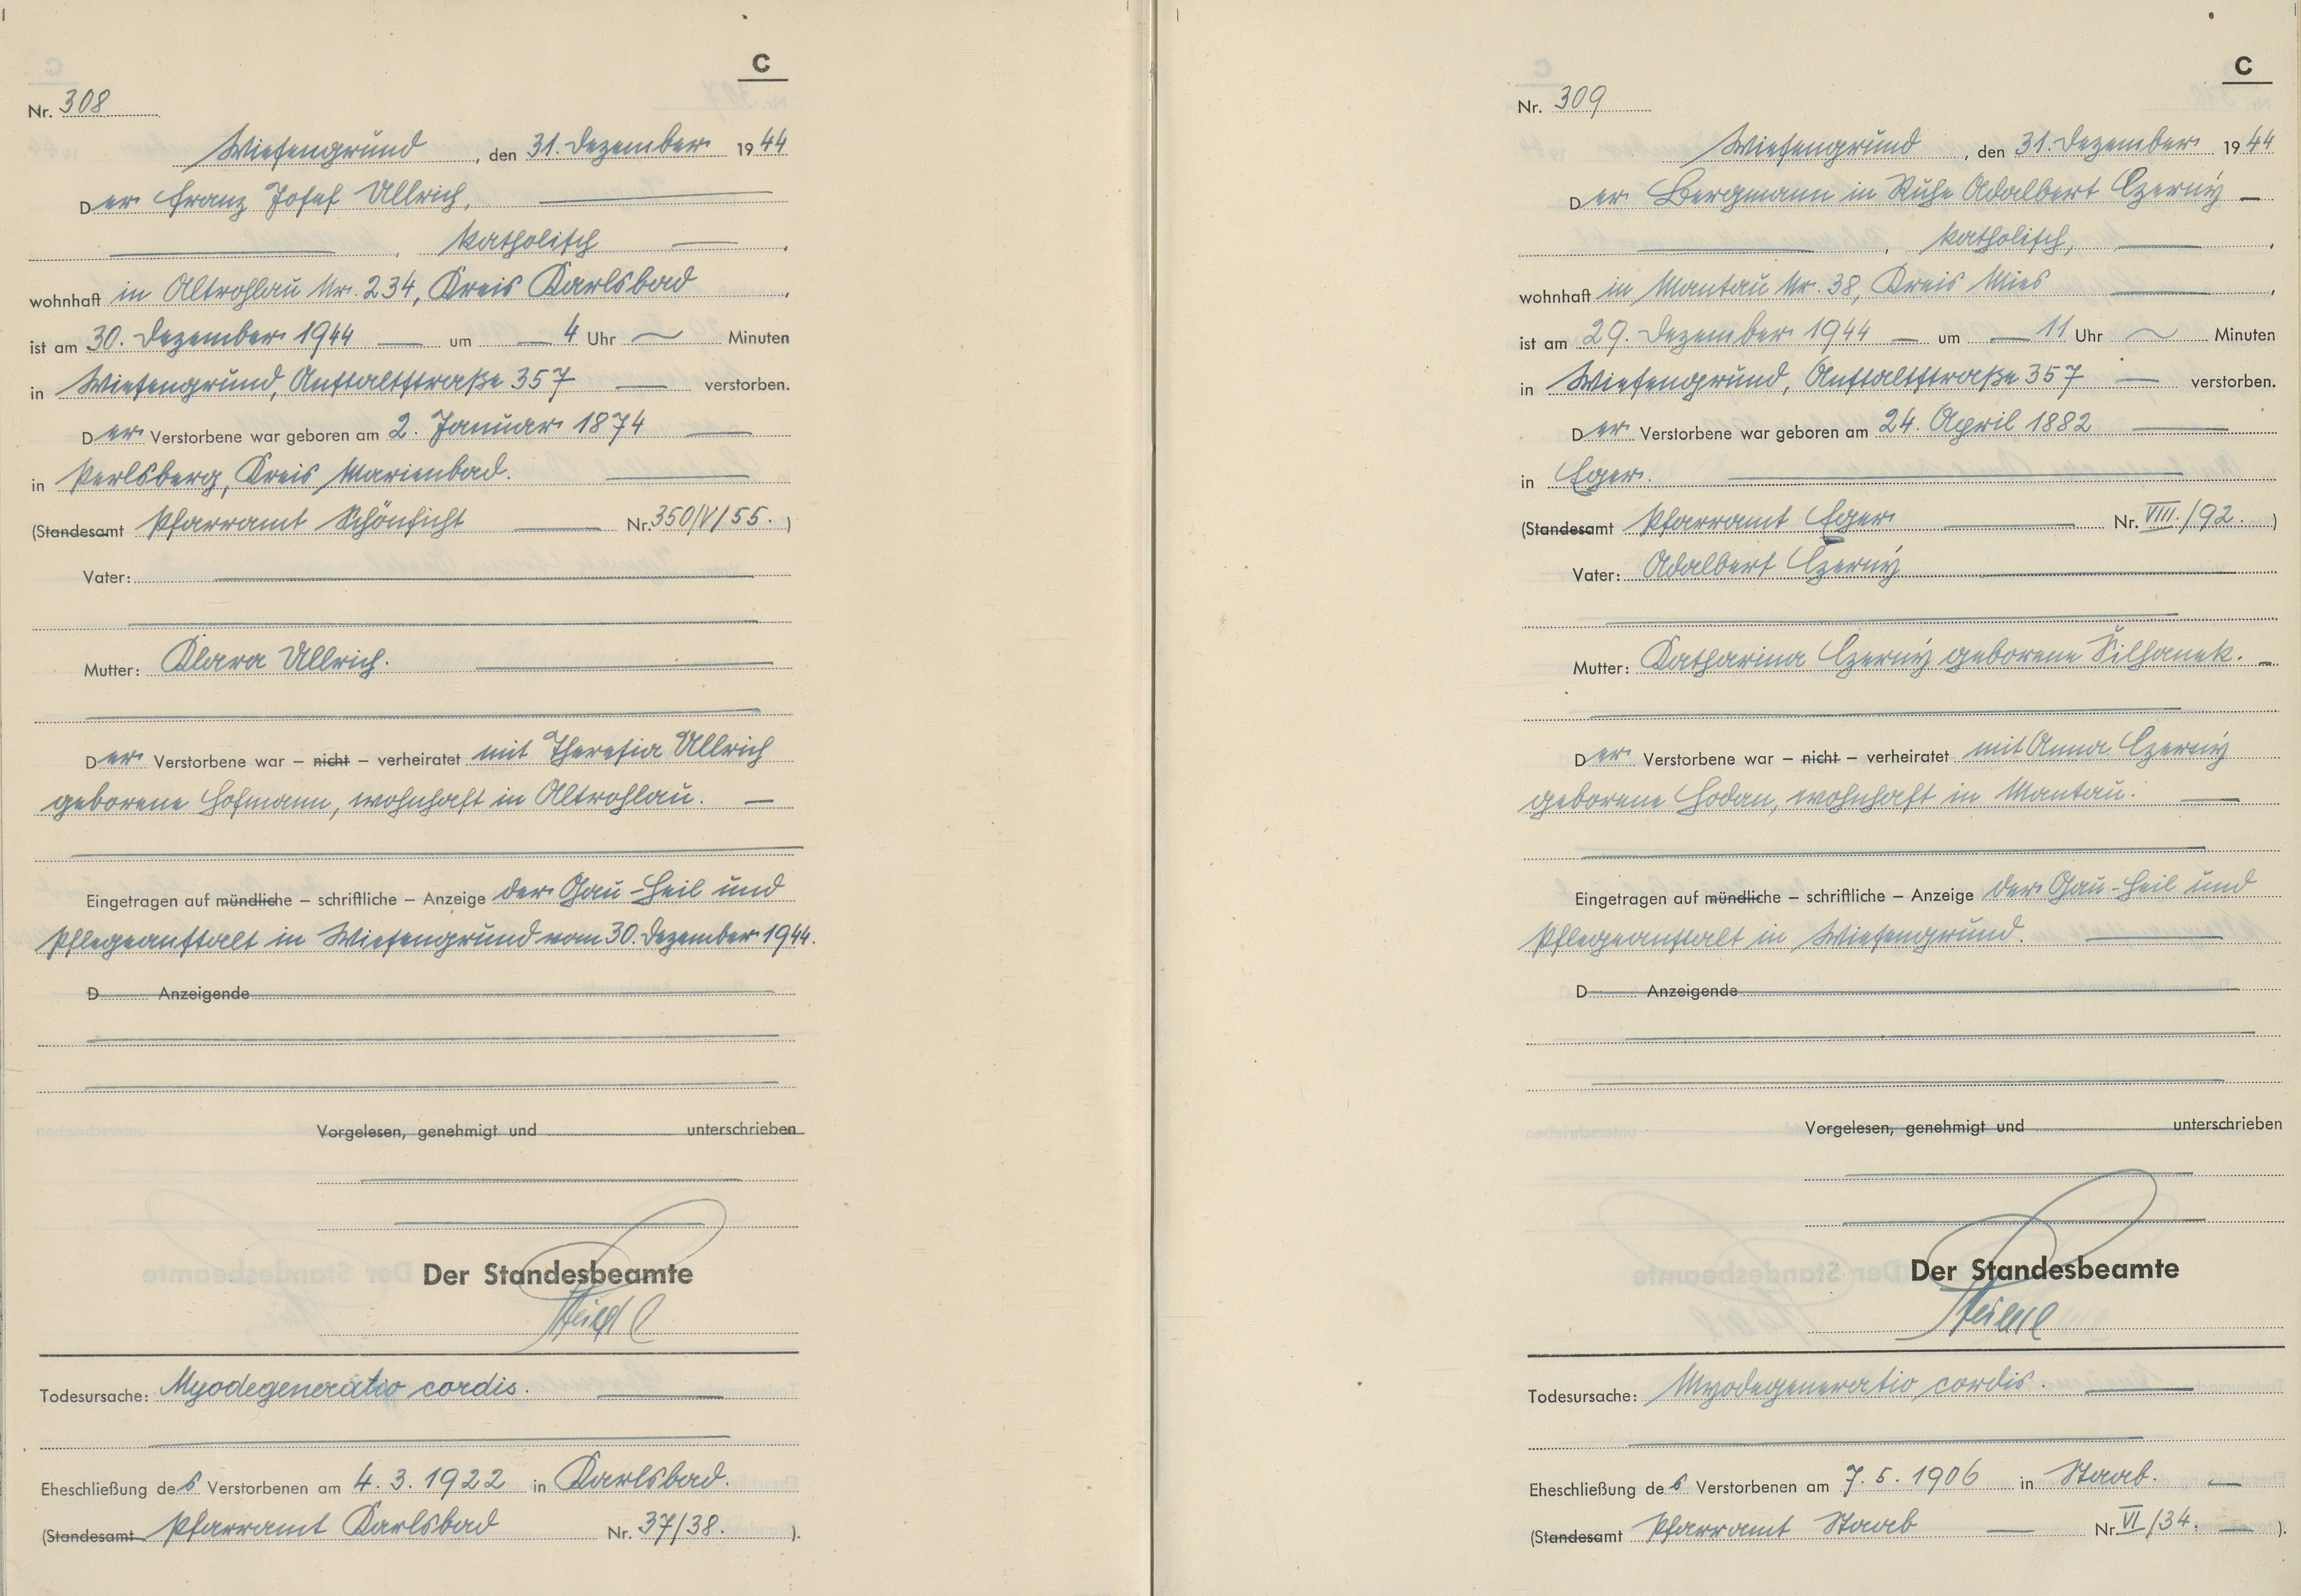 C
Nr. 308
Wiesengrund, den 31. Dezember 1944
Der Franz Josef Ullrich,
, katholisch .
wohnhaft in Altrohlau Nr. 234, Kreis Karlsbad .
ist am 30. Dezember 1944 um 4 Uhr Minuten
in Wiesengrund, Anstaltstraße 357 verstorben.
Der Verstorbene war geboren am 2. Januar 1874
in Perlsberg, Kreis Marienbad.
(Standesamt Pfarramt Schönficht Nr. 350/V/55. )
Vater:
Mutter: Klara Ullrich.
Der Verstorbene war – nicht – verheiratet mit Theresia Ullrich
geborene Hofmann, wohnhaft in Altrohlau.
Eingetragen auf mündliche – schriftliche – Anzeige der Gau-Heil und
Pflegeanstalt in Wiesengrund vom 30. Dezember 1944.
D Anzeigende
Vorgelesen, genehmigt und unterschrieben
Der Standesbeamte
Todesursache: Myodegeneratio cordis.
Eheschließung des Verstorbenen am 4. 3. 1922 in Karlsbad.
(Standesamt Pfarramt Karlsbad Nr. 37/38. ).
C
Nr. 309
Wiesengrund, den 31. Dezember 1944
Der Bergmann in Ruhe Adalbert Czerný
, katholisch, ,
wohnhaft in Mantau Nr. 38, Kreis Mies ,
ist am 29. Dezember 1944 um 11 Uhr Minuten
in Wiesengrund, Anstaltstraße 357 verstorben.
Der Verstorbene war geboren am 24. April 1882
in Eger.
(Standesamt Pfarramt Eger Nr. VIII./92. )
Vater: Adalbert Czerný
Mutter: Katharina Czerný geborene Šilhanek.
Der Verstorbene war – nicht – verheiratet mit Anna Czerný
geborene Hodan, wohnhaft in Mantau.
Eingetragen auf mündliche – schriftliche – Anzeige der Gau-Heil und
Pflegeanstalt in Wiesengrund.
D Anzeigende
Vorgelesen, genehmigt und unterschrieben
Der Standesbeamte
Todesursache: Myodegeneratio cordis.
Eheschließung des Verstorbenen am 7. 5. 1906 in Staab.
(Standesamt Pfarramt Staab Nr. VI/34. ).